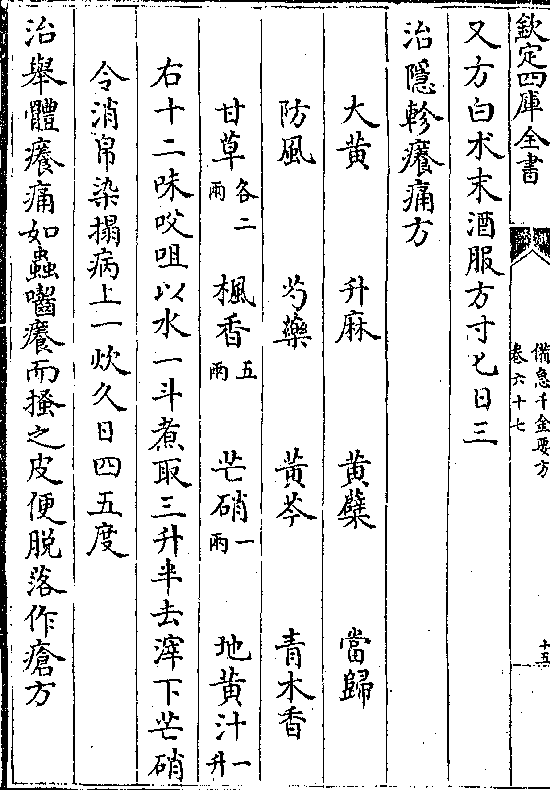 欽定四庫全書
備急千金要方
卷六十七
十五
又方白术末酒服方寸匕日三
治隱軫癢痛方
大黄 升麻 黄蘗 當歸
防風 芍藥 黄芩 青木香
甘草各二兩 楓香五兩 芒硝一兩 地黄汁一升
右十二味㕮咀以水一斗煮取三升半去滓下芒硝
令消帛染搨病上一炊久日四五度
治舉體癢痛如蟲嚙癢而搔之皮便脱落作瘡方